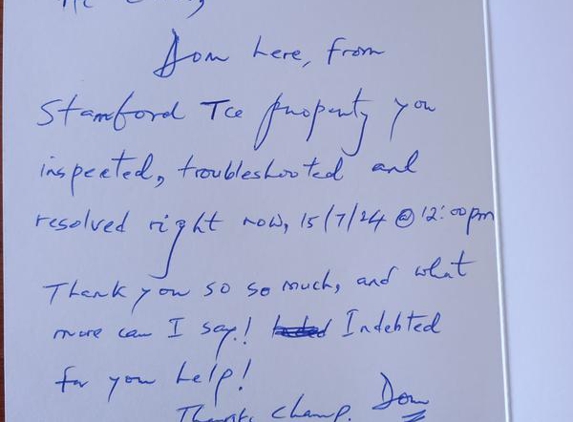 Dom here, from
Stamford Tce property you
inspected, troubleshooted and
resolved right now, 15/7/24 @ 12:00pm
Thank you so so much, and what
more can I say! Indebted
for your help!
Thanks champ. Dom